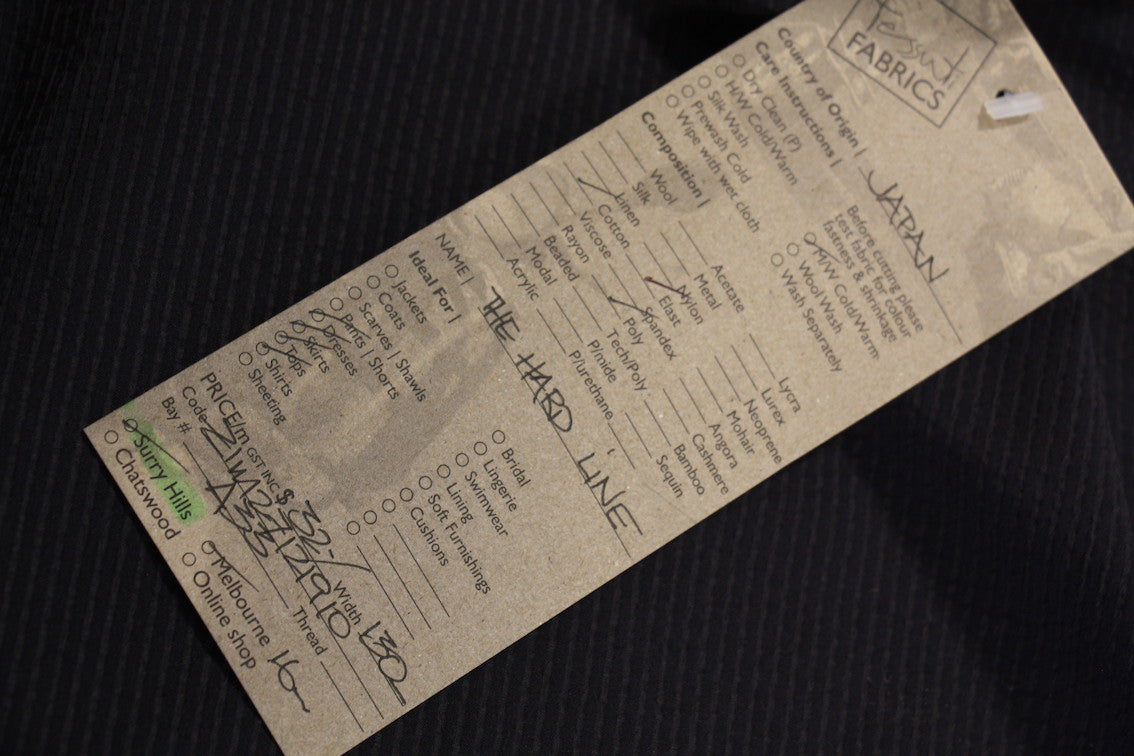 Tessuti
FABRICS
Country of Origin | JAPAN
Care Instructions |
Dry Clean (P)
H/W Cold/Warm
Silk Wash
Prewash Cold
Wipe with wet cloth
Before cutting please
test fabric for colour
fastness & shrinkage
M/W Cold/Warm
Wool Wash
Wash Separately
Composition |
Wool
Silk
Linen
Cotton
Viscose
Rayon
Beaded
Modal
Acrylic
Acetate
Metal
Nylon
Elast
Spandex
Poly
Tech/Poly
P/mide
P/urethane
Lycra
Lurex
Neoprene
Mohair
Angora
Cashmere
Bamboo
Sequin
NAME | THE HARD LINE
Ideal For |
Jackets
Coats
Scarves | Shawls
Pants | Shorts
Dresses
Skirts
Tops
Shirts
Sheeting
Bridal
Lingerie
Swimwear
Lining
Soft Furnishings
Cushions
PRICE/m GST INC $ 32.- Width 130
Code
Bay # A33 Thread
Surry Hills
Chatswood
Melbourne
Online shop